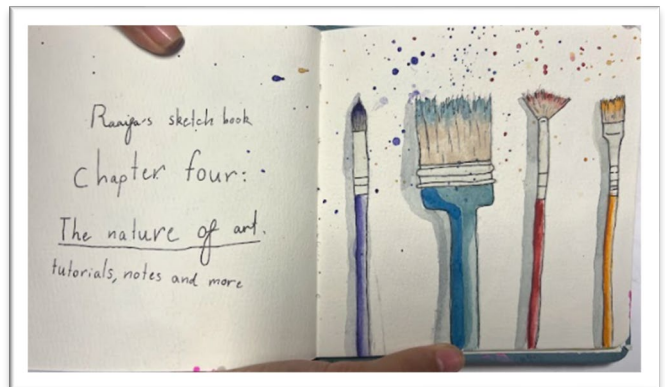 Raaya's sketch book
chapter four:
The nature of art.
tutorials, notes and more